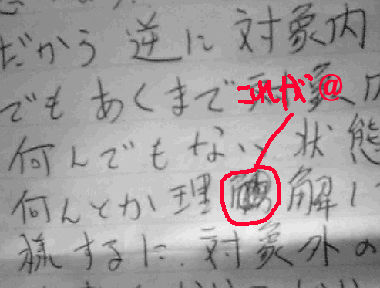 だから逆に対象内
でもあくまで
これが@
何んでもない、状態
何んとか理解し
様するに、対象外の